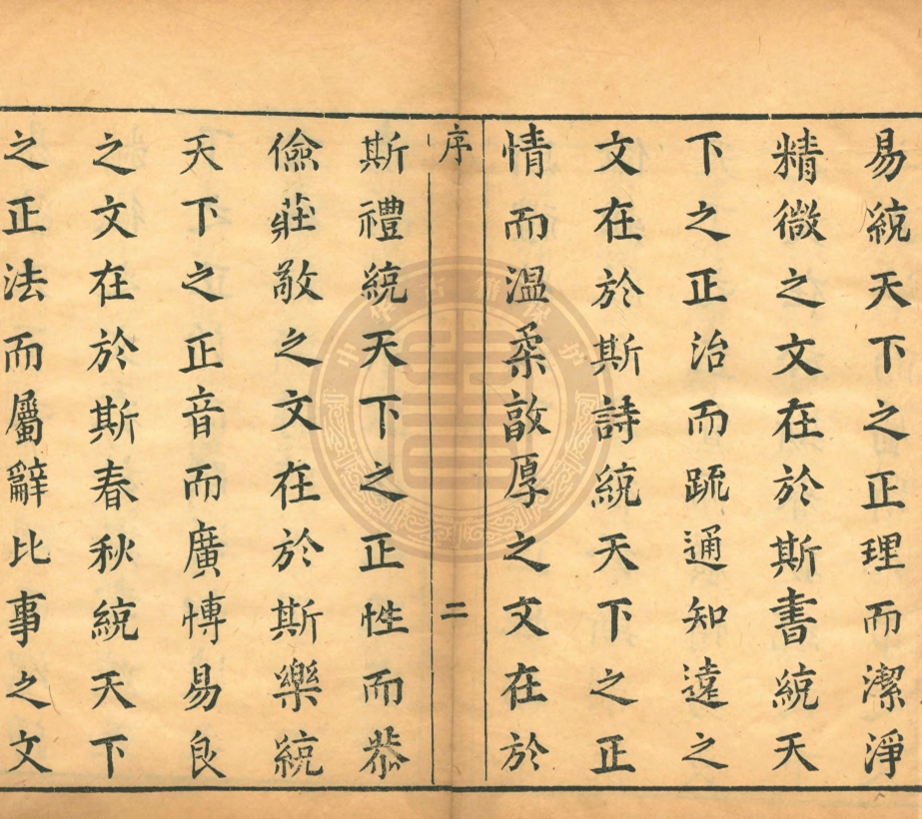 易統天下之正理而潔淨
精微之文在於斯書統天
下之正治而疏通知遠之
文在於斯詩統天下之正
情而温柔敦厚之文在於
序
二
斯禮統天下之正性而恭
儉莊敬之文在於斯樂統
天下之正音而廣博易良
之文在於斯春秋統天下
之正法而屬辭比事之文